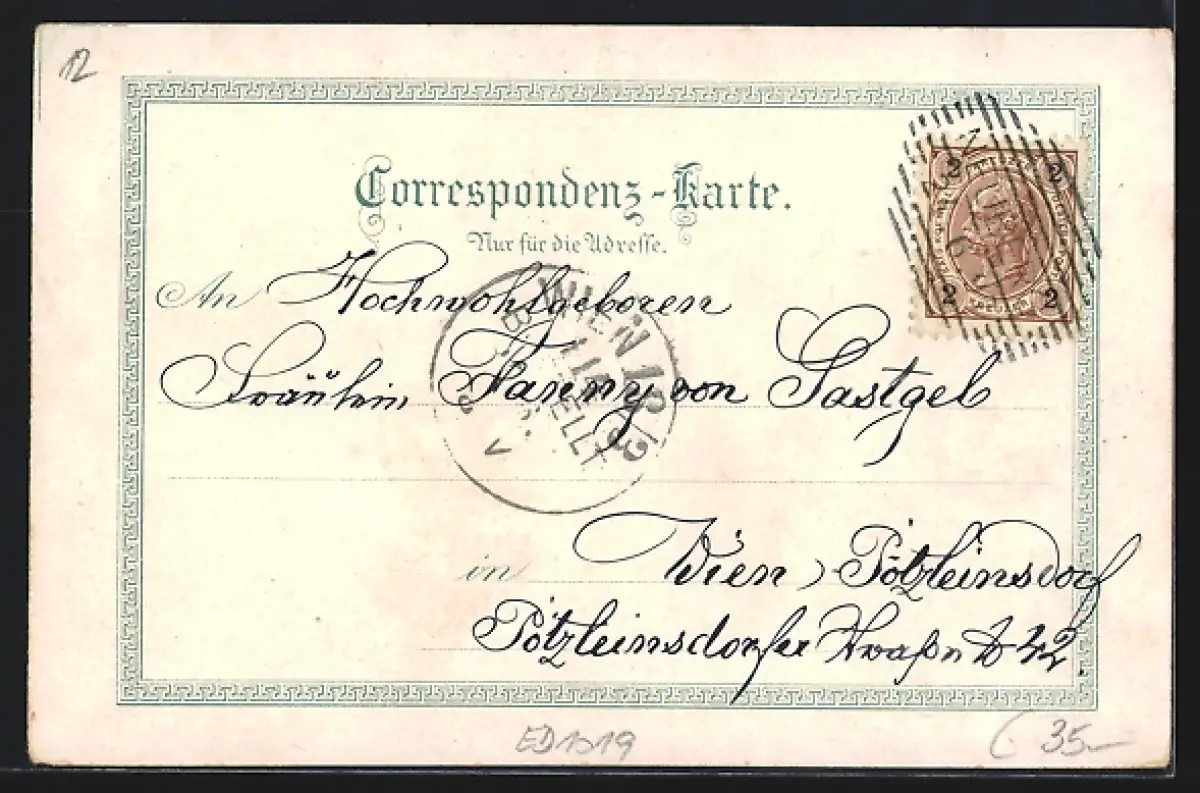 12
Correspondenz-Karte.
Nur für die Adresse.
2 2
2 2
An Hochwohlgeboren
Fräulein Fanny von Gastgeb
WIEN
BESTELLT
in Wien, Pötzleinsdorf
Pötzleinsdorfer Straße No 42.
35-